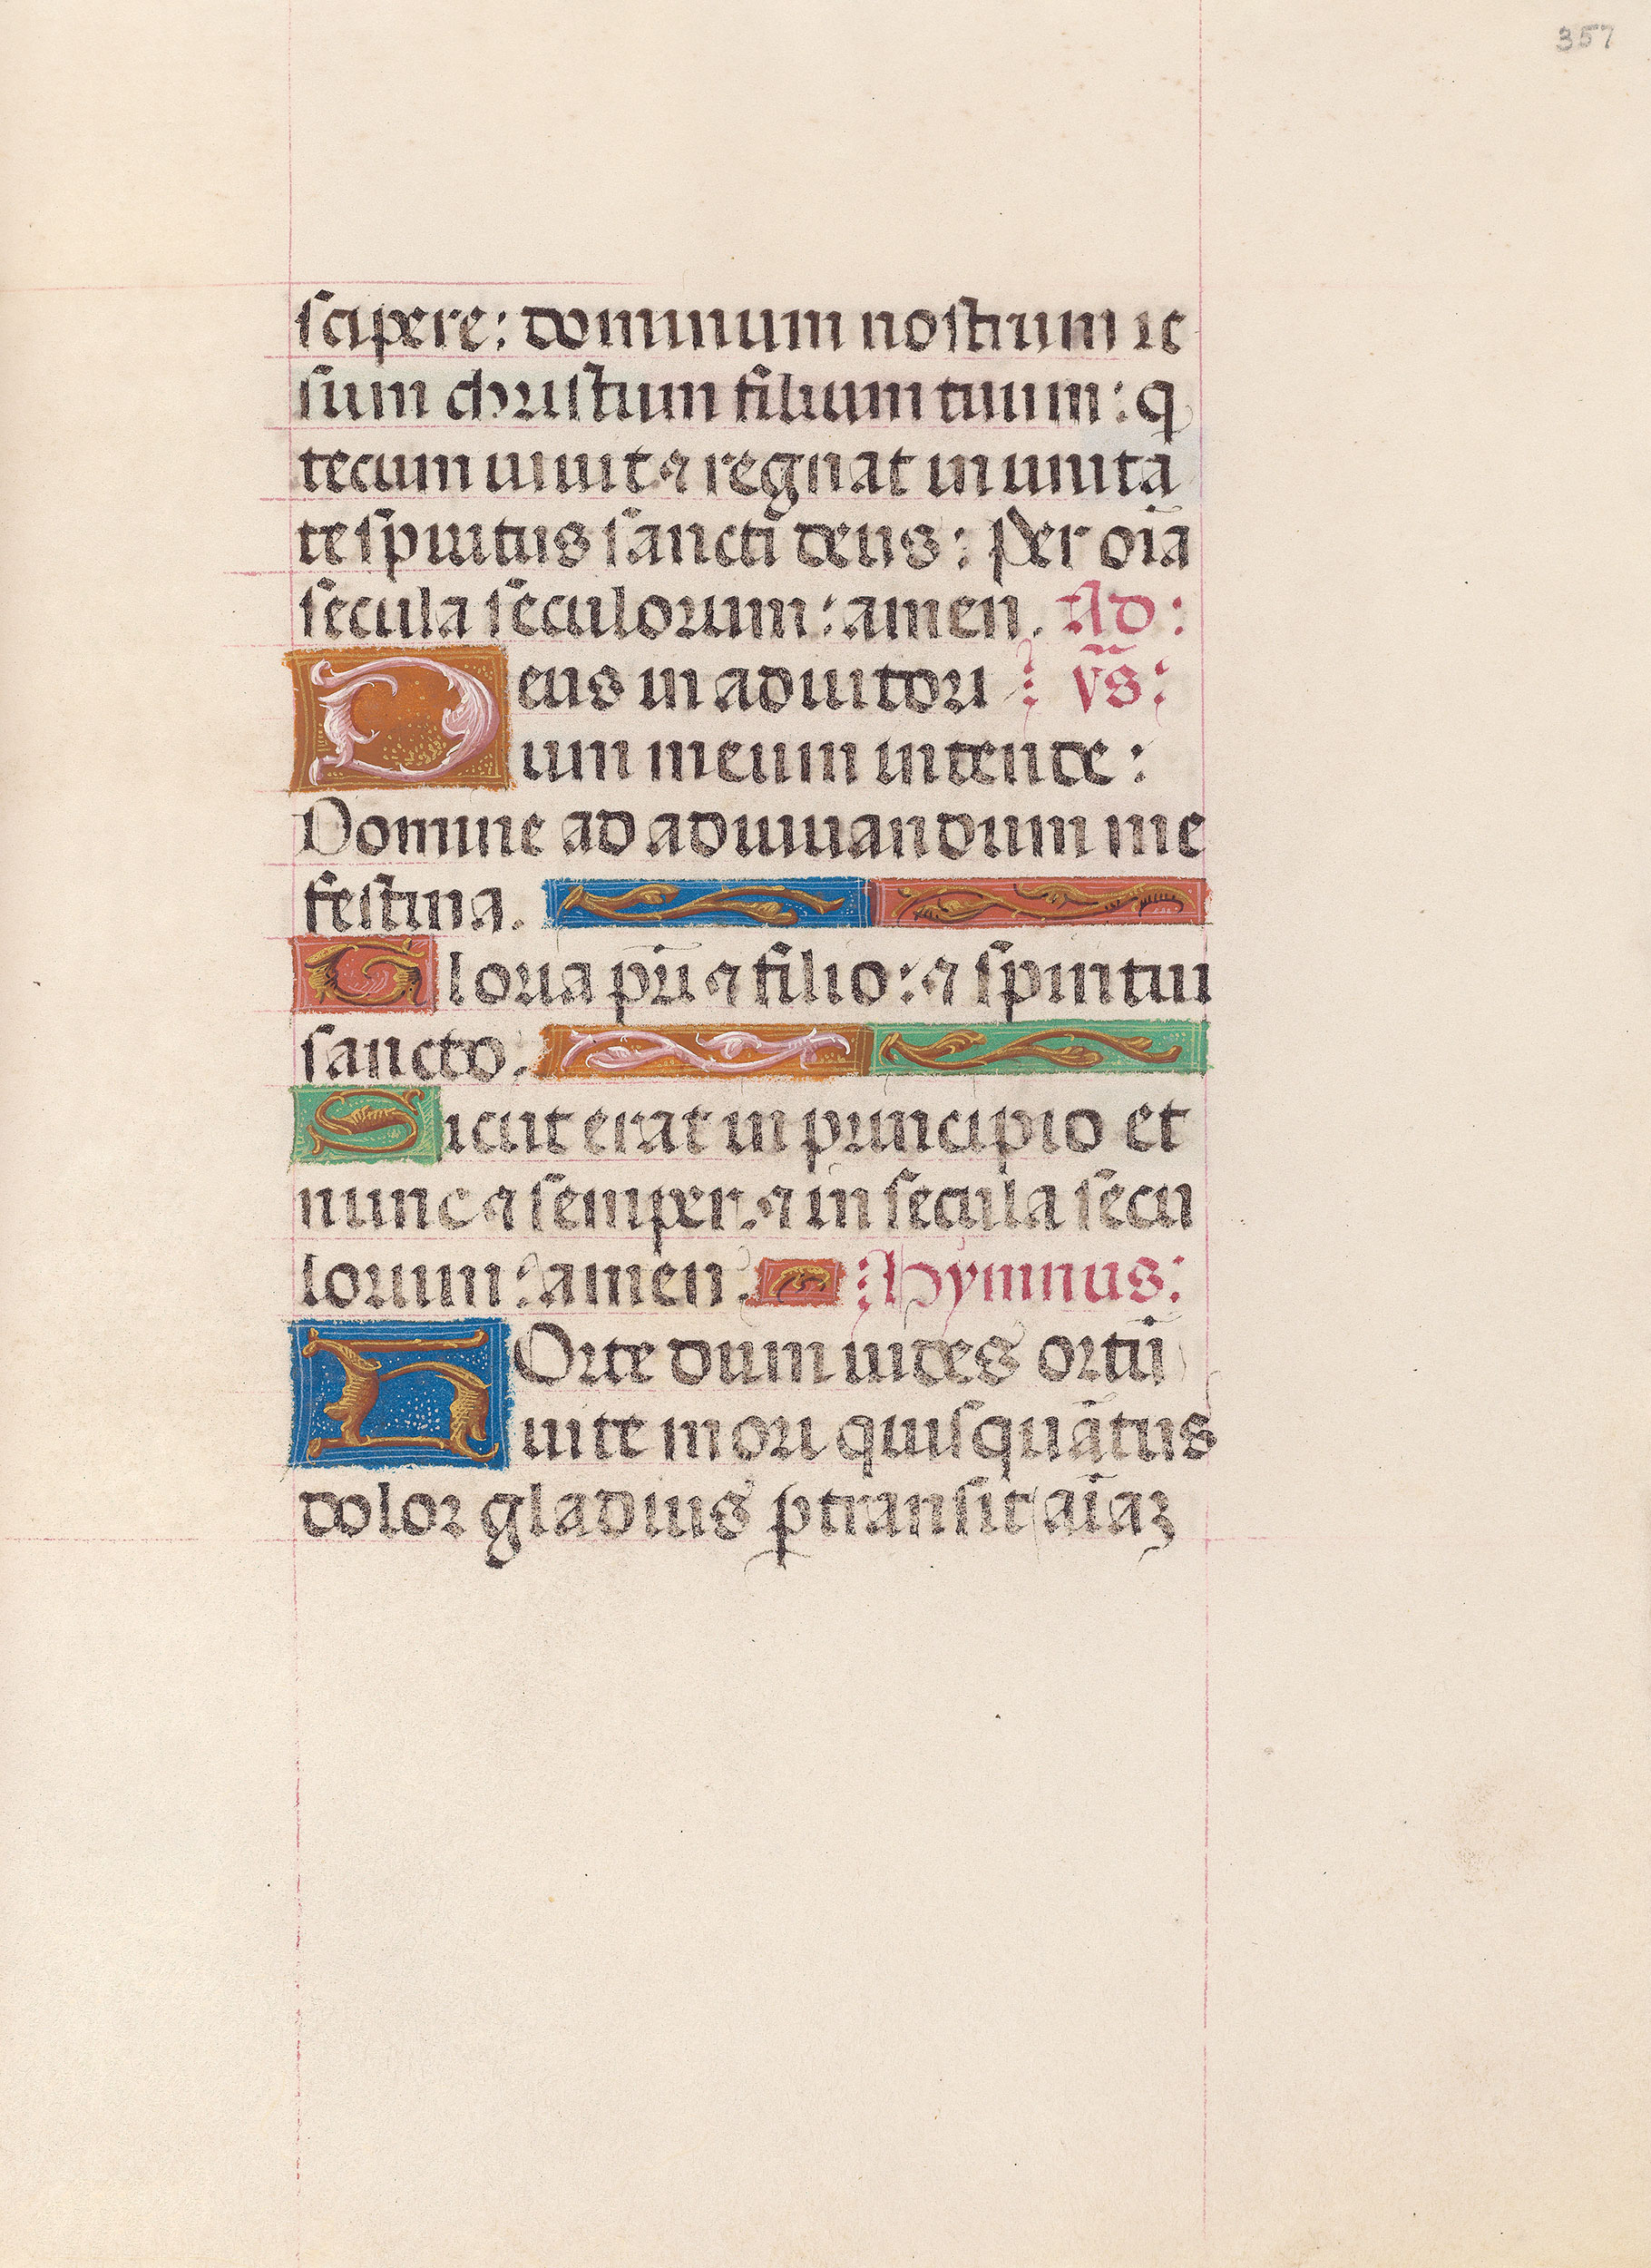 357
scipere: dominum nostrum ie
sum christum filium tuum: q
tecum viuit ⁊ regnat in unita
te spiritus sancti deus: Per oīa
secula seculorum: amen. Ad:
Deus in adiutori : v̄s:
um meum intende:
Domine ad adiuuandum me
festina.
Gloria pr̄i ⁊ filio: ⁊ spiritui
sancto.
Sicut erat in principio et
nunc ⁊ semper: ⁊ in secula secu
lorum: amen. :Hymnus:
MOrte dum vides ortū
vite mori quisquātus
dolor gladius ꝑtransit aīaꝫ